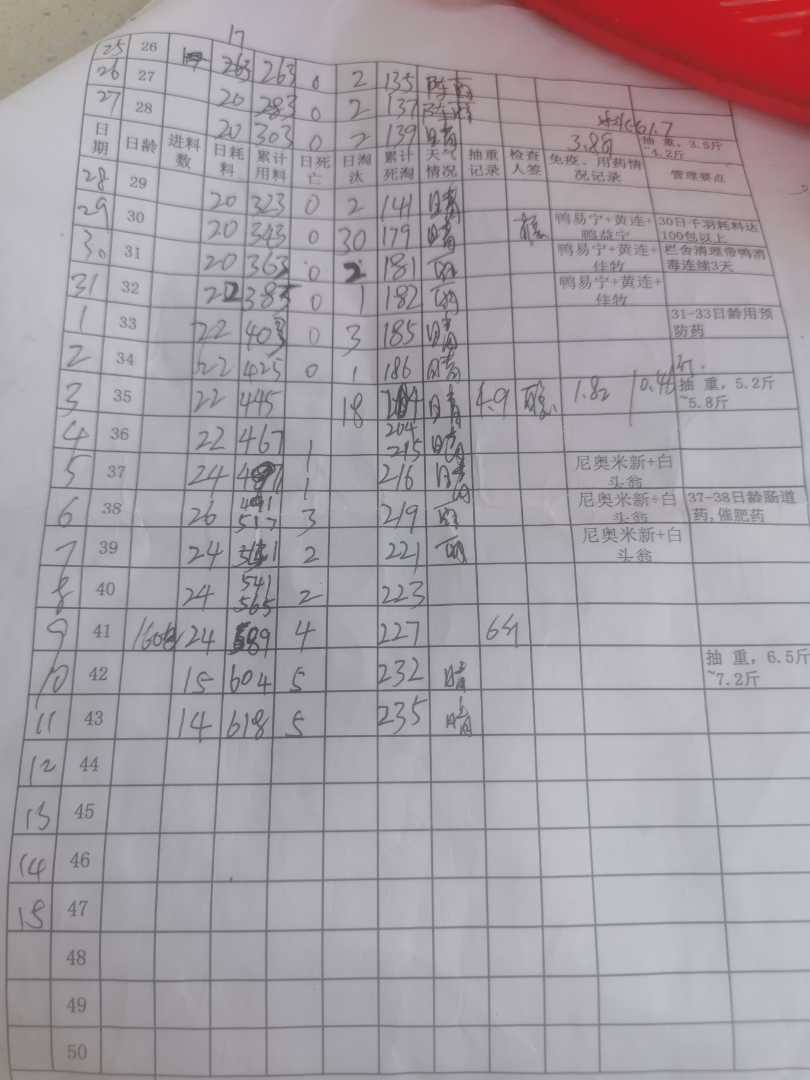 17
25 26 263 263 0 2 135 阵雨
26 27 20 283 0 2 137
27 28 20 303 0 2 139 晴 3.8斤 抽 重，3.5斤~4.2斤
日期 日龄 进料数 日耗料 累计用料 日死亡 日淘汰 累计死淘 天气情况 抽重记录 检查人签 免疫、用药情况记录 管理要点
28 29 20 323 0 2 141 晴
29 30 20 343 0 30 179 晴 鸭易宁+黄连+鸭益宁 30日千羽耗料达100包以上
30 31 20 363 0 2 181 鸭易宁+黄连+佳牧 栏舍清理带鸭消毒连续3天
31 32 22 385 0 1 182 鸭易宁+黄连+佳牧
1 33 22 403 0 3 185 晴 31-33日龄用预防药
2 34 22 425 0 1 186 晴
3 35 22 445 18 204 晴 4.9 1.82 抽 重，5.2斤~5.8斤
4 36 22 467 1 215 晴
5 37 24 1 216 晴 尼奥米新+白头翁
6 38 26 491 517 3 219 尼奥米新+白头翁 37-38日龄肠道药,催肥药
7 39 24 2 221 尼奥米新+白头翁
8 40 24 541 565 2 223
9 41 24 589 4 227 6斤
10 42 15 604 5 232 晴 抽 重，6.5斤~7.2斤
11 43 14 618 5 235 晴
12 44
13 45
14 46
15 47
48
49
50